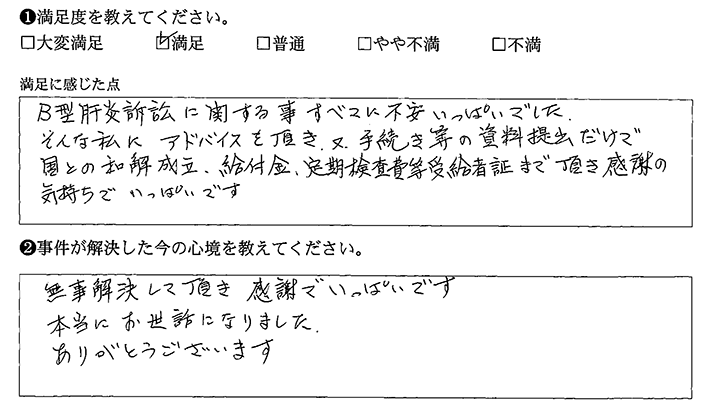 ❶満足度を教えてください。
□大変満足 ☑満足 □普通 □やや不満 □不満
満足に感じた点
B型肝炎訴訟に関する事すべてに不安いっぱいでした.
そんな私に アドバイスを頂き.又.手続き等の資料提出だけで
国との和解成立、給付金、定期検査費等受給者証まで頂き感謝の
気持ちで いっぱいです
❷事件が解決した今の心境を教えてください。
無事解決して頂き 感謝でいっぱいです
本当に お世話になりました.
ありがとうございます